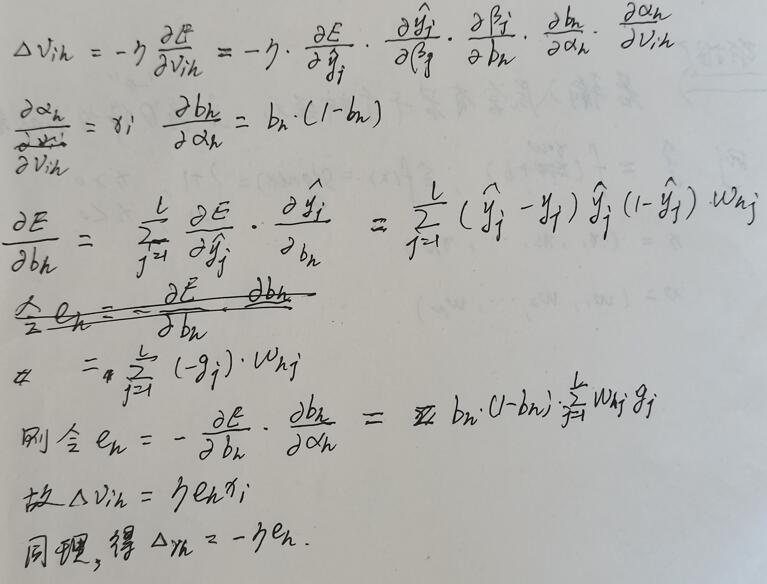 Δv_ih = -η ∂E/∂v_ih = -η · ∂E/∂ŷ_j · ∂ŷ_j/∂β_j · ∂β_j/∂b_h · ∂b_h/∂α_h · ∂α_h/∂v_ih
∂α_h/∂v_ih = x_i ∂b_h/∂α_h = b_h·(1-b_h)
∂E/∂b_h = Σ_{j=1}^{l} ∂E/∂ŷ_j · ∂ŷ_j/∂b_h = Σ_{j=1}^{l} (ŷ_j - y_j) ŷ_j (1-ŷ_j) · w_hj
令 e_h = - ∂E/∂b_h · ∂b_h
= Σ_{j=1}^{l} (-g_j) · w_hj
则令 e_h = - ∂E/∂b_h · ∂b_h/∂α_h = b_h·(1-b_h)·Σ_{j=1}^{l} w_hj g_j
故 Δv_ih = η e_h x_i
同理,得 Δγ_h = -η e_h.